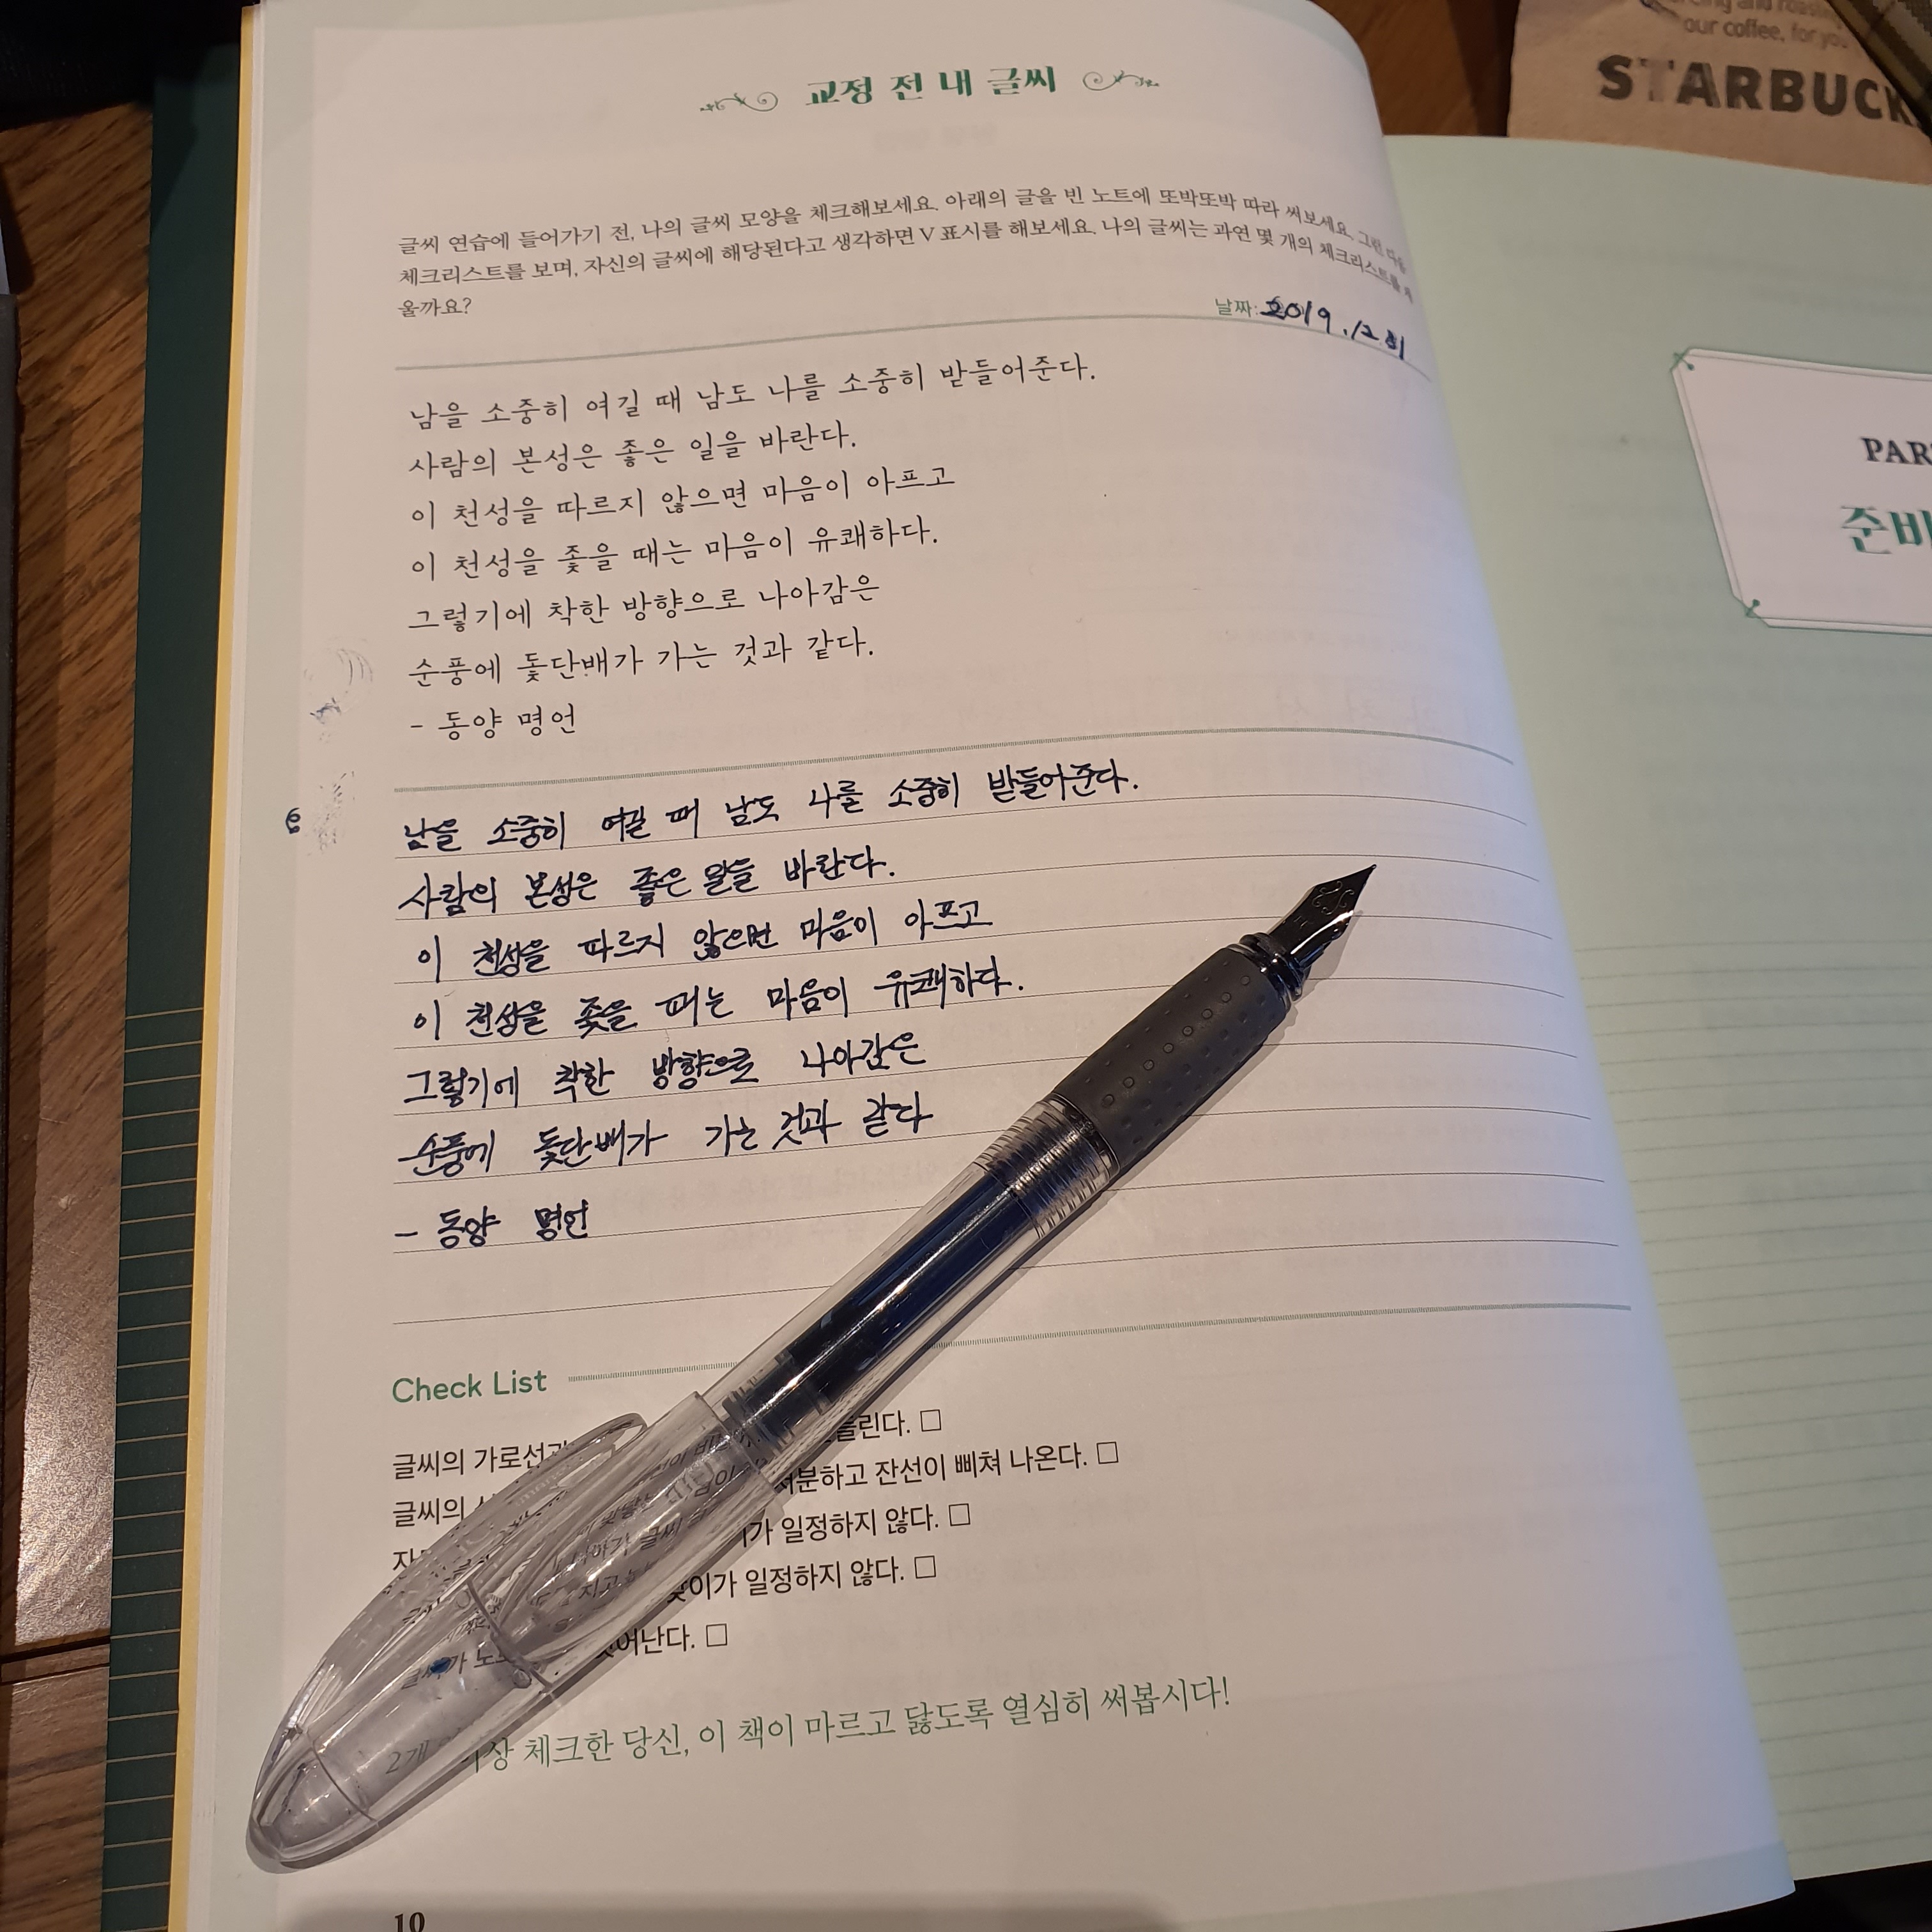 our coffee, for you
STARBUCK
교정 전 내 글씨
글씨 연습에 들어가기 전, 나의 글씨 모양을 체크해보세요. 아래의 글을 빈 노트에 또박또박 따라 써보세요. 그런 다음
체크리스트를 보며, 자신의 글씨에 해당된다고 생각하면 V 표시를 해보세요. 나의 글씨는 과연 몇 개의 체크리스트를
울까요?
날짜: 2019.12.31
남을 소중히 여길 때 남도 나를 소중히 받들어준다.
사람의 본성은 좋은 일을 바란다.
이 천성을 따르지 않으면 마음이 아프고
이 천성을 좇을 때는 마음이 유쾌하다.
그렇기에 착한 방향으로 나아감은
순풍에 돛단배가 가는 것과 같다.
- 동양 명언
남을 소중히 여길 때 남도 나를 소중히 받들어준다.
사람의 본성은 좋은 일을 바란다.
이 천성을 따르지 않으면 마음이 아프고
이 천성을 좇을 때는 마음이 유쾌하다.
그렇기에 착한 방향으로 나아감은
순풍에 돛단배가 가는 것과 같다
- 동양 명언
Check List
글씨의 가로선과
글씨의 잔선이 삐쳐 나온다. □
글씨 일정하지 않다. □
일정하지 않다. □
글씨가 □
2개 이상 체크한 당신, 이 책이 마르고 닳도록 열심히 써봅시다!
10
PAR
준비